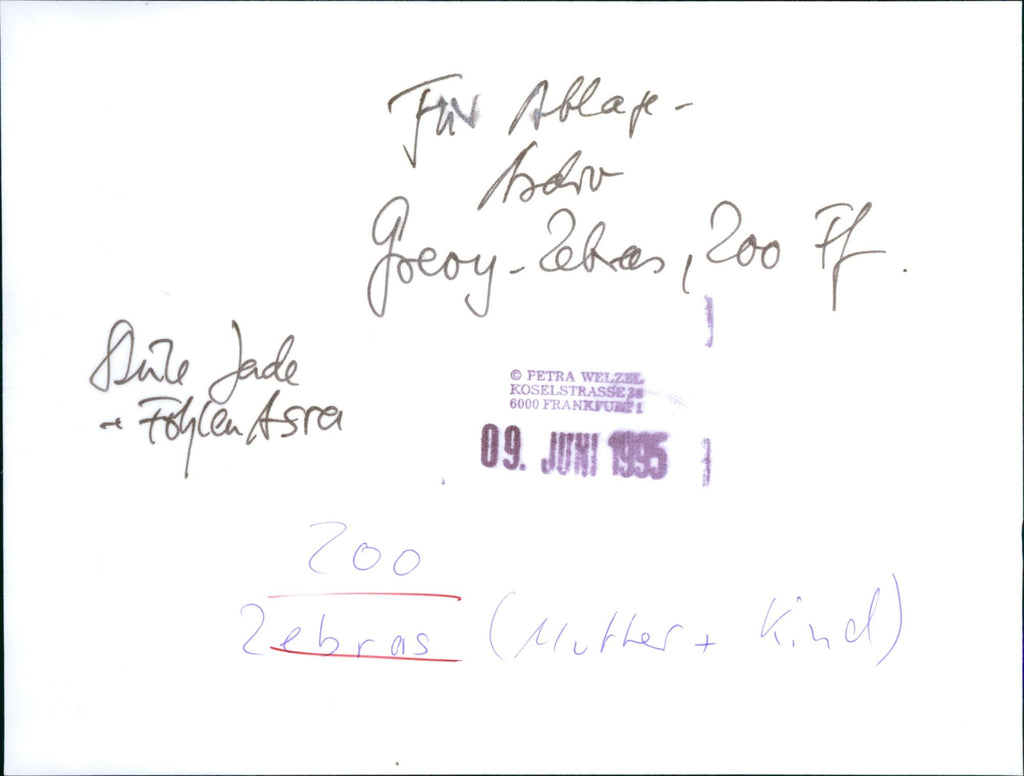 Für Ablage-
Archiv
Grevy-Zebras, Zoo Ff.
Stute Jade
+ Fohlen Asra
© PETRA WELZEL
KOSELSTRASSE
6000 FRANKFURT 1
09. JUNI 1995
Zoo
Zebras (Mutter + Kind)